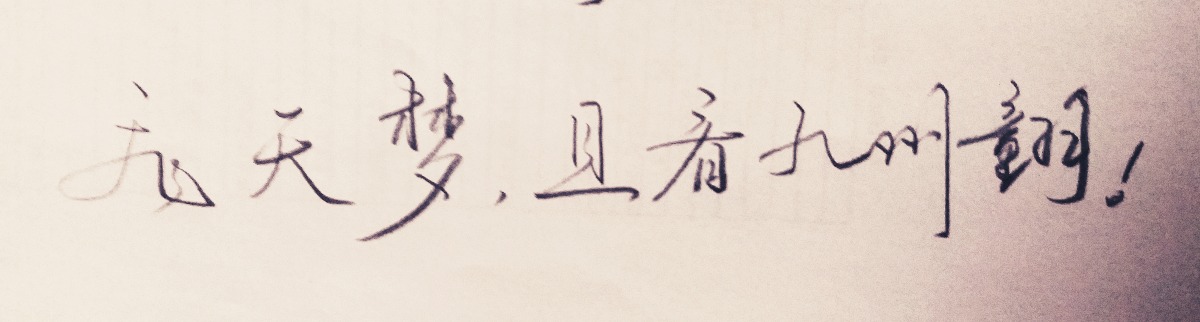 飞天梦,且看九州翻!